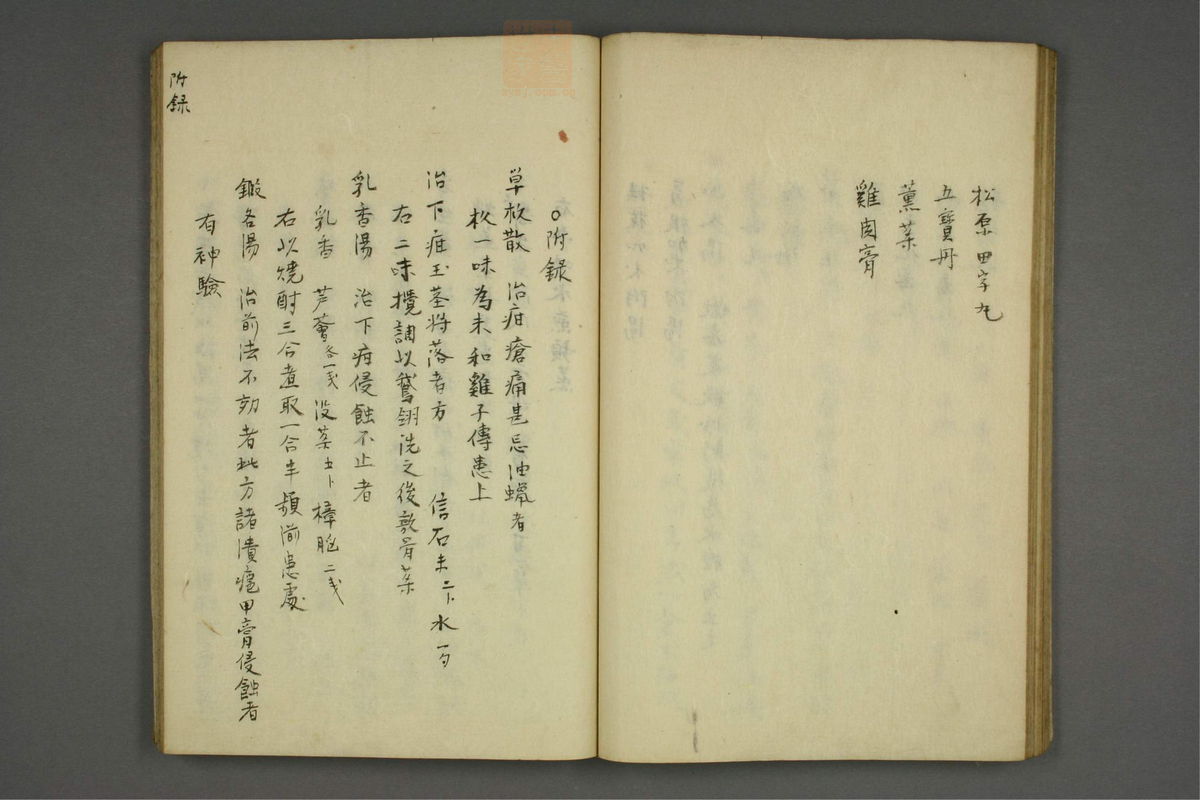 松原田字丸
五寶丹
薫薬
雞肉膏
附録
○附録
草杦散 治疳瘡痛甚忌油蠟者
杦一味為末和雞子傳患上
治下疳玉莖将落者方 信石末二卜 水一勺
右二味攪調以鵞翎洗之後敷骨薬
乳香湯 治下疳侵蝕不止者
乳香 芦薈各一戔 没薬五卜 樟脳二戔
右以焼酎三合煮取一合半頻澵患處
鍛各湯 治前法不効者此方諸潰瘡甲膏侵蝕者
有神験